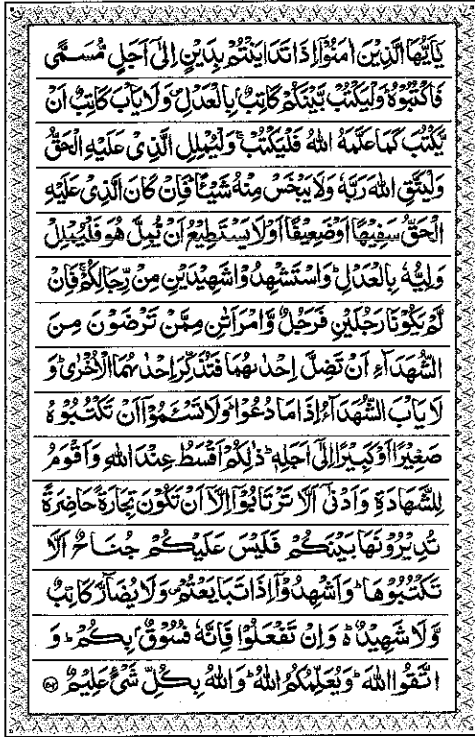 يٰۤاَيُّهَا الَّذِيْنَ اٰمَنُوْۤا اِذَا تَدَايَنْتُمْ بِدَيْنٍ اِلٰۤى اَجَلٍ مُّسَمًّى
فَاكْتُبُوْهُ ؕ وَلْيَكْتُبْ بَّيْنَكُمْ كَاتِبٌۢ بِالْعَدْلِ ۪ وَلَا يَاْبَ كَاتِبٌ اَنْ
يَّكْتُبَ كَمَا عَلَّمَهُ اللّٰهُ فَلْيَكْتُبْ ۚ وَلْيُمْلِلِ الَّذِيْ عَلَيْهِ الْحَقُّ
وَلْيَتَّقِ اللّٰهَ رَبَّهٗ وَلَا يَبْخَسْ مِنْهُ شَيْـًٔا ؕ فَاِنْ كَانَ الَّذِيْ عَلَيْهِ
الْحَقُّ سَفِيْهًا اَوْ ضَعِيْفًا اَوْ لَا يَسْتَطِيْعُ اَنْ يُّمِلَّ هُوَ فَلْيُمْلِلْ
وَلِيُّهٗ بِالْعَدْلِ ؕ وَاسْتَشْهِدُوْا شَهِيْدَيْنِ مِنْ رِّجَالِكُمْ ۚ فَاِنْ
لَّمْ يَكُوْنَا رَجُلَيْنِ فَرَجُلٌ وَّامْرَاَتٰنِ مِمَّنْ تَرْضَوْنَ مِنَ
الشُّهَدَآءِ اَنْ تَضِلَّ اِحْدٰىهُمَا فَتُذَكِّرَ اِحْدٰىهُمَا الْاُخْرٰى ؕ وَ
لَا يَاْبَ الشُّهَدَآءُ اِذَا مَا دُعُوْا ؕ وَلَا تَسْـَٔمُوْۤا اَنْ تَكْتُبُوْهُ
صَغِيْرًا اَوْ كَبِيْرًا اِلٰۤى اَجَلِهٖ ؕ ذٰلِكُمْ اَقْسَطُ عِنْدَ اللّٰهِ وَاَقْوَمُ
لِلشَّهَادَةِ وَاَدْنٰۤى اَلَّا تَرْتَابُوْۤا اِلَّاۤ اَنْ تَكُوْنَ تِجَارَةً حَاضِرَةً
تُدِيْرُوْنَهَا بَيْنَكُمْ فَلَيْسَ عَلَيْكُمْ جُنَاحٌ اَلَّا
تَكْتُبُوْهَا ؕ وَاَشْهِدُوْۤا اِذَا تَبَايَعْتُمْ ۪ وَلَا يُضَآرَّ كَاتِبٌ
وَّلَا شَهِيْدٌ ؕ۬ وَاِنْ تَفْعَلُوْا فَاِنَّهٗ فُسُوْقٌۢ بِكُمْ ؕ وَ
اتَّقُوا اللّٰهَ ؕ وَيُعَلِّمُكُمُ اللّٰهُ ؕ وَاللّٰهُ بِكُلِّ شَيْءٍ عَلِيْمٌ ۝۲۸۲